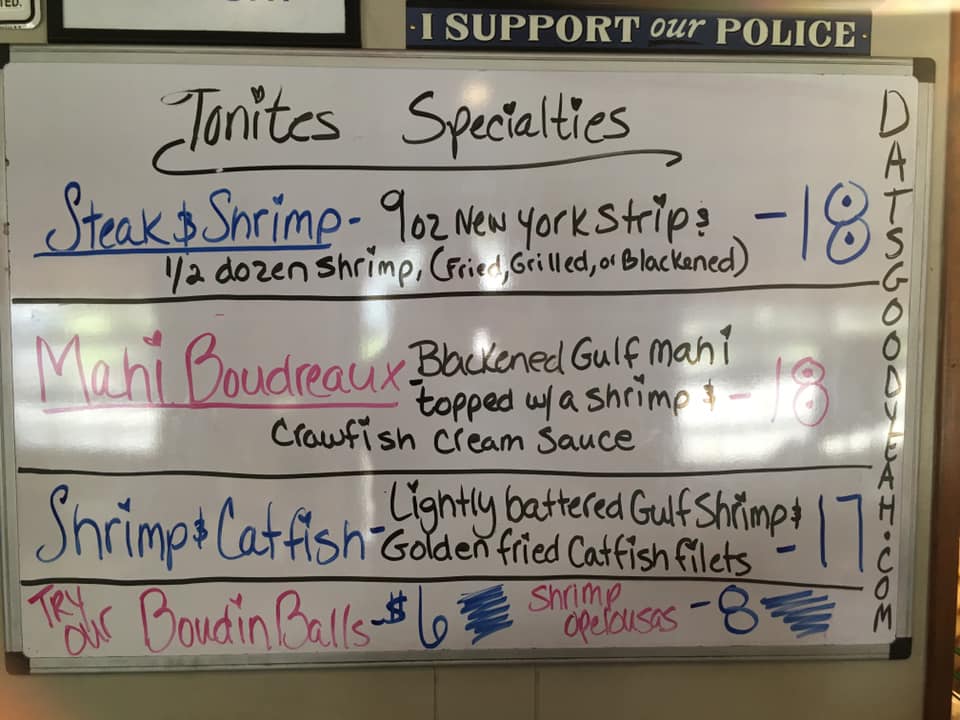 TED.
· I SUPPORT our POLICE ·
Tonites Specialties
Steak & Shrimp - 9oz New York Strip & - 18
1/2 dozen shrimp, (Fried, Grilled, or Blackened)
Mahi Boudreaux - Blackened Gulf mahi
topped w/ a shrimp & - 18
Crawfish cream sauce
Shrimp & Catfish - Lightly battered Gulf Shrimp &
Golden fried Catfish filets - 17
TRY our Boudin Balls - $6
Shrimp opelousas - 8
DATSGOODYEAH.COM